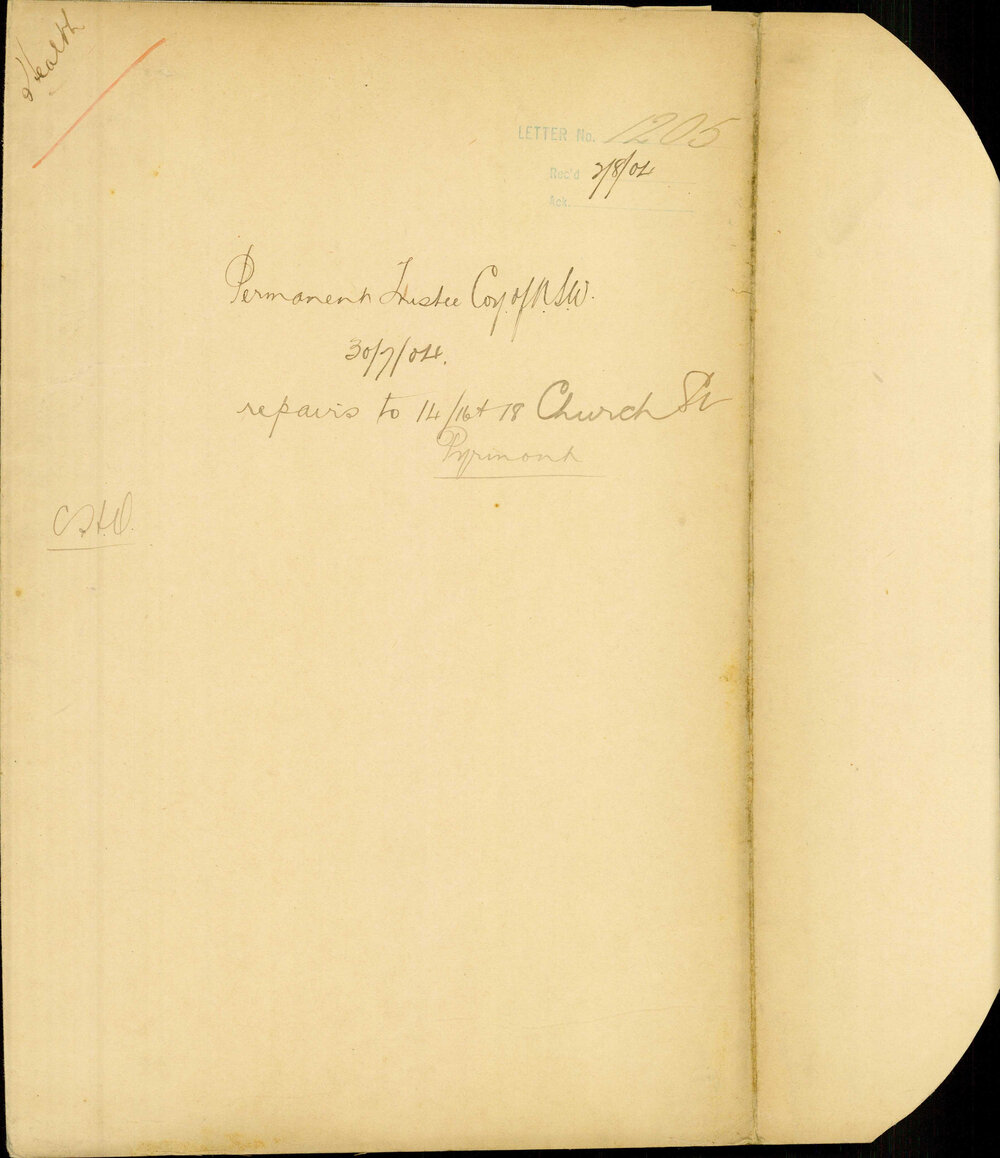 Health
LETTER No. 1205
Rec'd 2/8/04
Ack.
Permanent Trustee Coy. of N.S.W.
30/7/04.
repairs to 14/16 & 18 Church St
Pyrmont